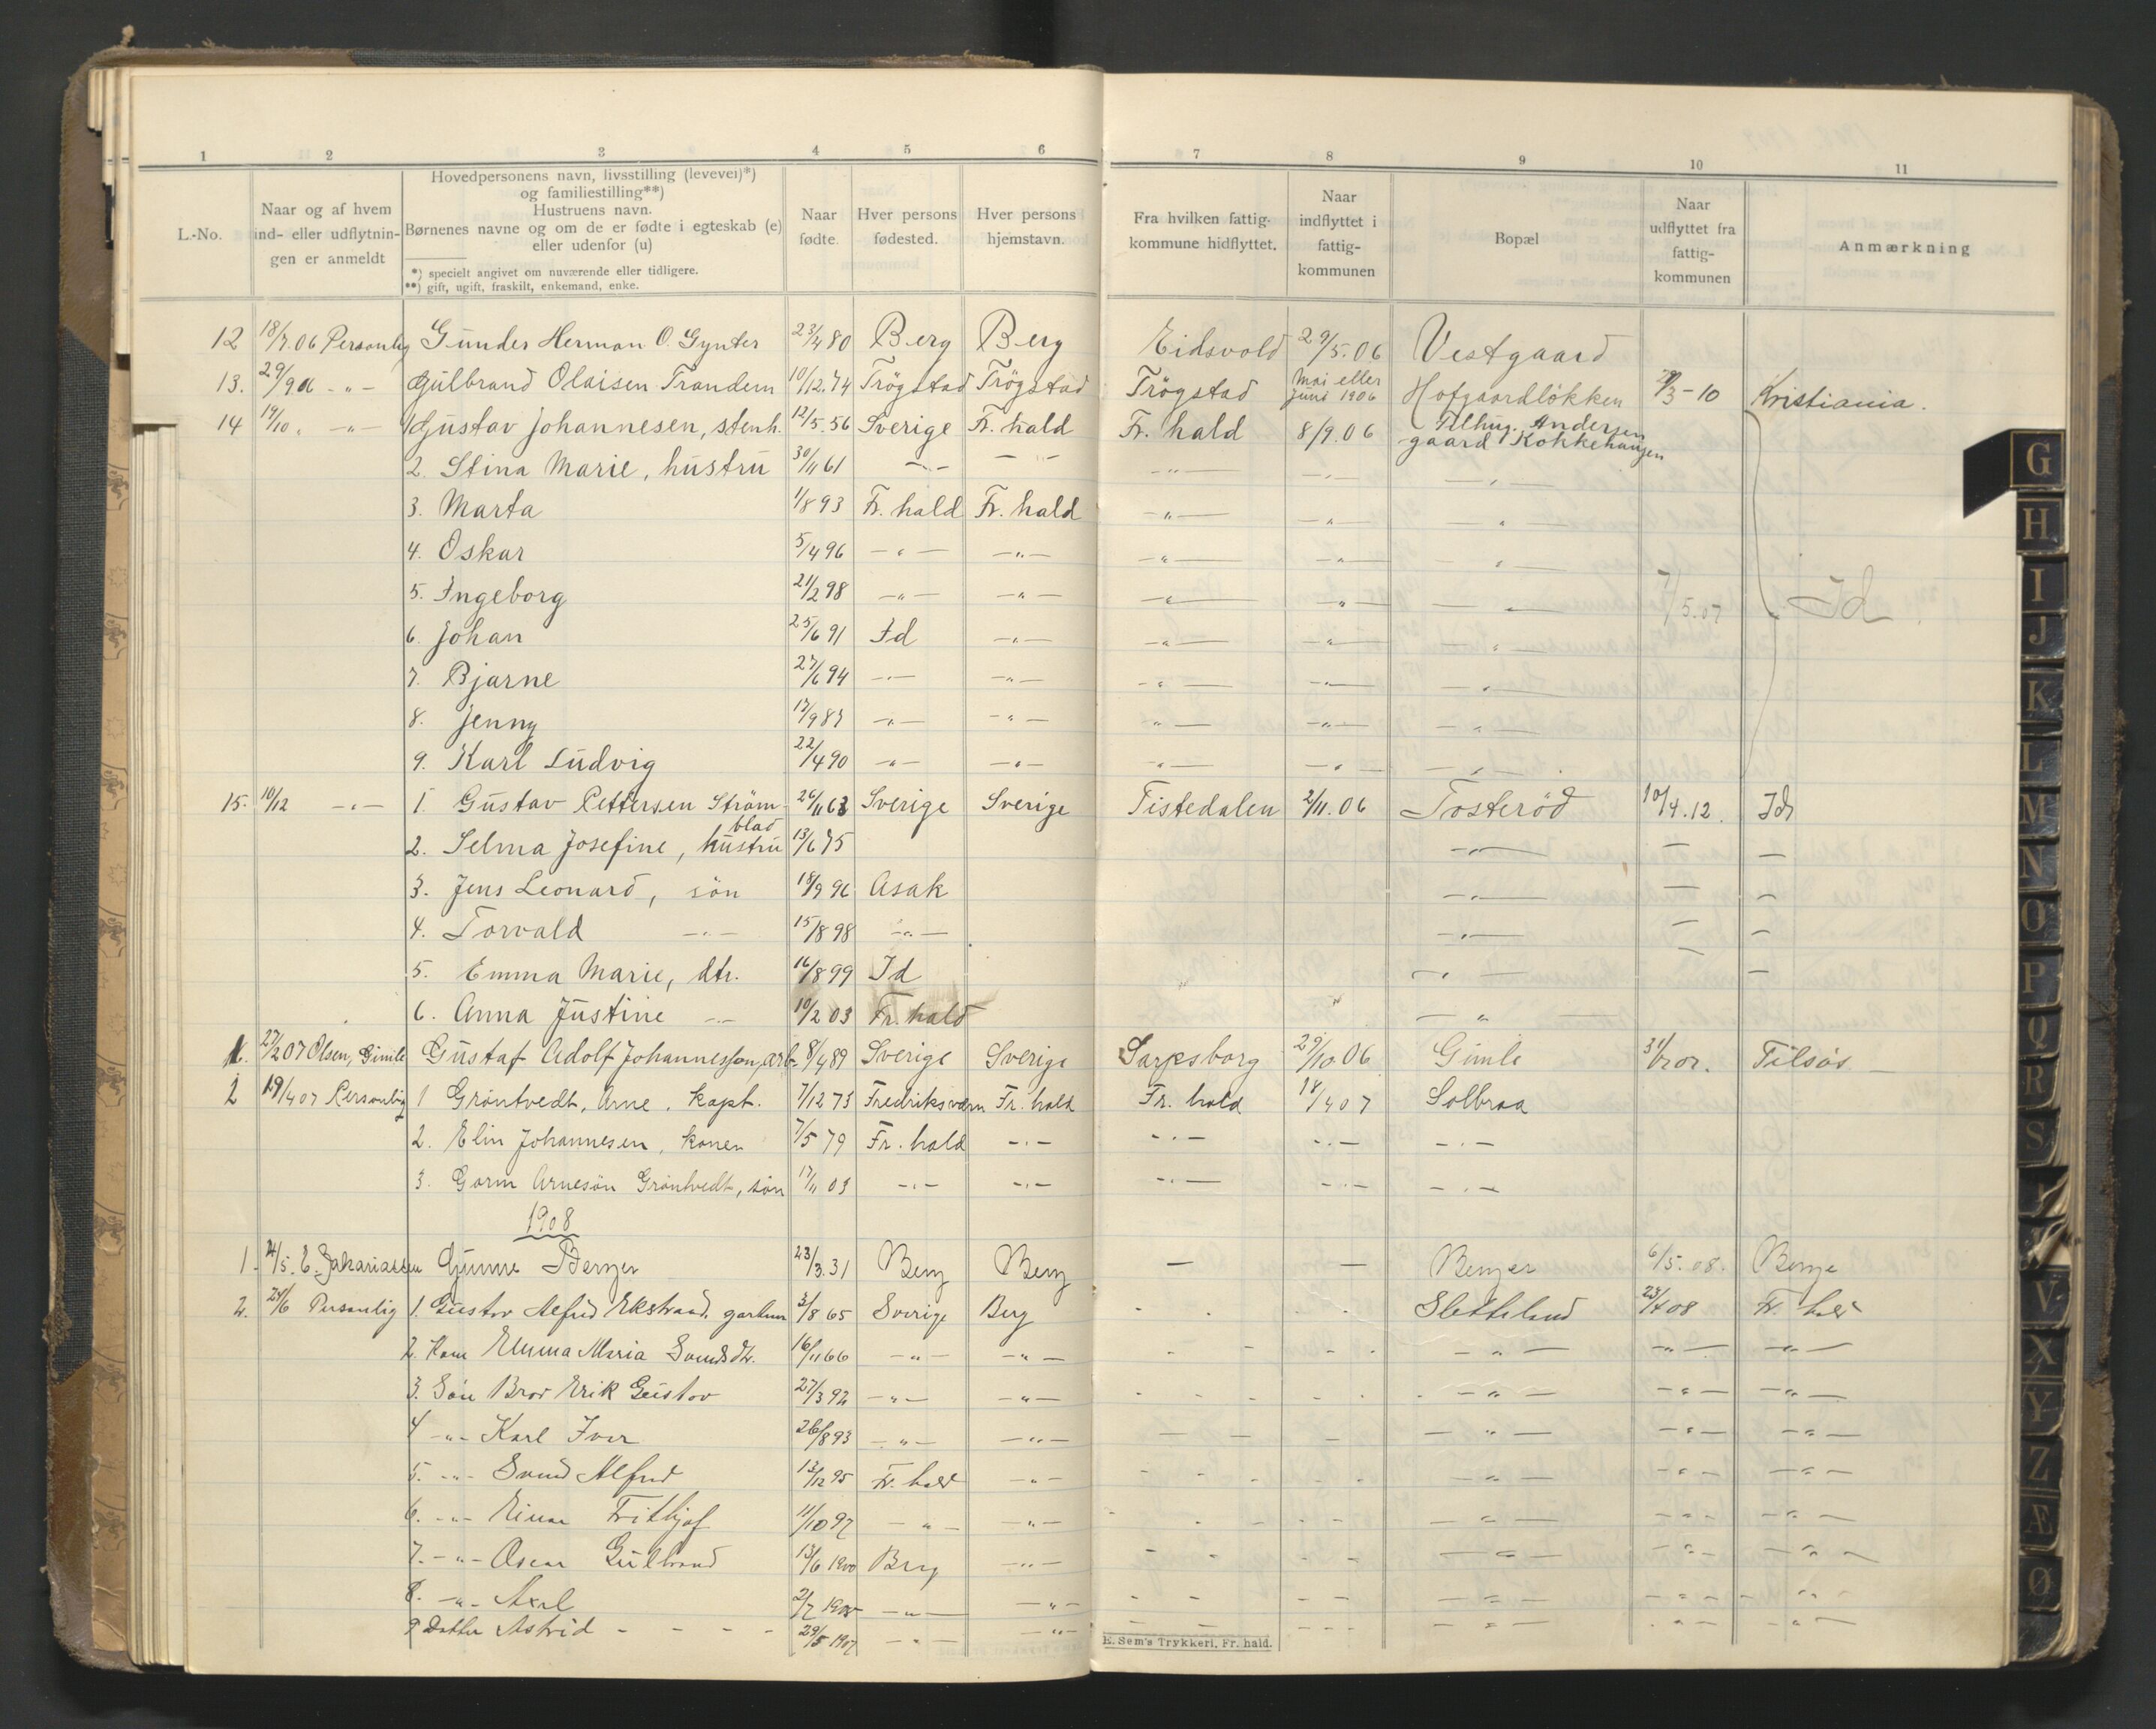 1 2 3 4 5 6 7 8 9 10 11
L.-No.
Naar og af hvem
ind- eller udflytnin-
gen er anmeldt
Hovedpersonens navn, livsstilling (levevei)*)
og familiestilling**)
Hustruens navn.
Børnenes navne og om de er fødte i egteskab (e)
eller udenfor (u)
*) specielt angivet om nuværende eller tidligere.
**) gift, ugift, fraskilt, enkemand, enke.
Naar
fødte.
Hver persons
fødested.
Hver persons
hjemstavn.
Fra hvilken fattig-
kommune hidflyttet.
Naar
indflyttet i
fattig-
kommunen
Bopæl
Naar
udflyttet fra
fattig-
kommunen
Anmærkning
12 18/7.06 Personlig Gunder Herman O. Gynter 23/4 80 Berg Berg Eidsvold 29/5.06 Vestgaard
13. 29/9 06 -"- Gulbrand Olaisen Trandem 10/12.74 Trögstad Trögstad Trögstad Mai eller Juni 1906 Hofgaardlökken /3-10 Kristiania.
14 19/10 " -"- 1 Gustav Johannesen, stenh. 12/5.56 Sverige Fr. hald Fr. hald 8/9.06 Tilhug. Andersen
gaard Kokkehaugen
2. Stina Marie, hustru 30/11 61 -"- -"- -"- -"- -"-
3. Marta 1/8 93 Fr. hald Fr. hald -"- -"- -"-
4. Oskar 5/4 96 -"- -"- -"- -"- -"-
5. Ingeborg 21/2 98 -"- -"- -"- -"- -"- 7/5.07 Id
6. Johan 25/6 91 Id -"- -"- -"- -"-
7. Bjarne 27/6 94 -"- -"- -"- -"- -"-
8. Jenny 17/9 87 -"- -"- -"- -"- -"-
9. Karl Ludvig 22/4 90 -"- -"- -"- -"- -"-
15. 10/12 -"- 1. Gustav Pettersen Ström- 26/11 63 Sverige Sverige Tistedalen 2/11.06 Tosteröd 10/4.12. Id
blad
2. Selma Josefine, hustru 13/6 75 -"- — —
3. Jens Leonard, sön 18/9 96 Asak -"- — —
4. Torvald -"- 15/8 98 -"- -"- — —
5. Emma Marie, dtr. 16/8 99 Id -"- — —
6. Anna Justine -"- 10/2 03 Fr. hald " " -"-
1. 27/2 07 Olsen, Gimle Gustaf Adolf Johannesson, arb. 8/4 89 Sverige Sverige Sarpsborg 29/10 06 Gimle Tilsös
2 19/4 07 Personlig 1 Gröntvedt, Arne, kapt. 7/12 73 Fredriksværn Fr. hald Fr. hald 18/4 07 Solbraa
2. Elin Johannesen, konen 7/5 79 Fr. hald -"- -"- -"- -"-
3. Gorm Arnesön Gröntvedt, sön 17/11 03 -"- -"- -"- -"- -"-
1908
1. 24/5. E. Zakariassen Gunne Berger 23/3.31 Berg Berg — — Berger 6/5.08. Berge
2. 24/6 Personlig 1. Gustav Alfred Ekstrand, gartner 3/8 65 Sverige Berg - - Sletteland 23/4 08 Fr. hald
2. Kone Emma Maria Svendsdtr. 16/11 66 -"- -"- - - -"- -"- -"-
3. Sön Bror Erik Gustav 27/3 92 -"- -"- - - -"- -"- -"-
4 -"- Karl Iver 26/8 93 -"- -"- - - -"- -"- -"-
5. -"- Svend Alfred 13/12 95 Fr. hald -"- - - -"- -"- -"-
6. -"- Einar Frithjof 11/10 97 -"- -"- - - -"- -"- -"-
7. -"- Oscar Gulbrand 13/6 1900 Berg -"- - - -"- -"- -"-
8. -"- Axel -"- -"- - - -"- -"- -"-
9 Datter Astrid - - - - 29/5 1907 -"- -"- - - -"- -"- -"-
E. Sem's Trykkeri, Fr. hald.
G
H
I
J
K
L
M
N
O
P
Q
R
S
V
X
Y
Z
Æ
Ø